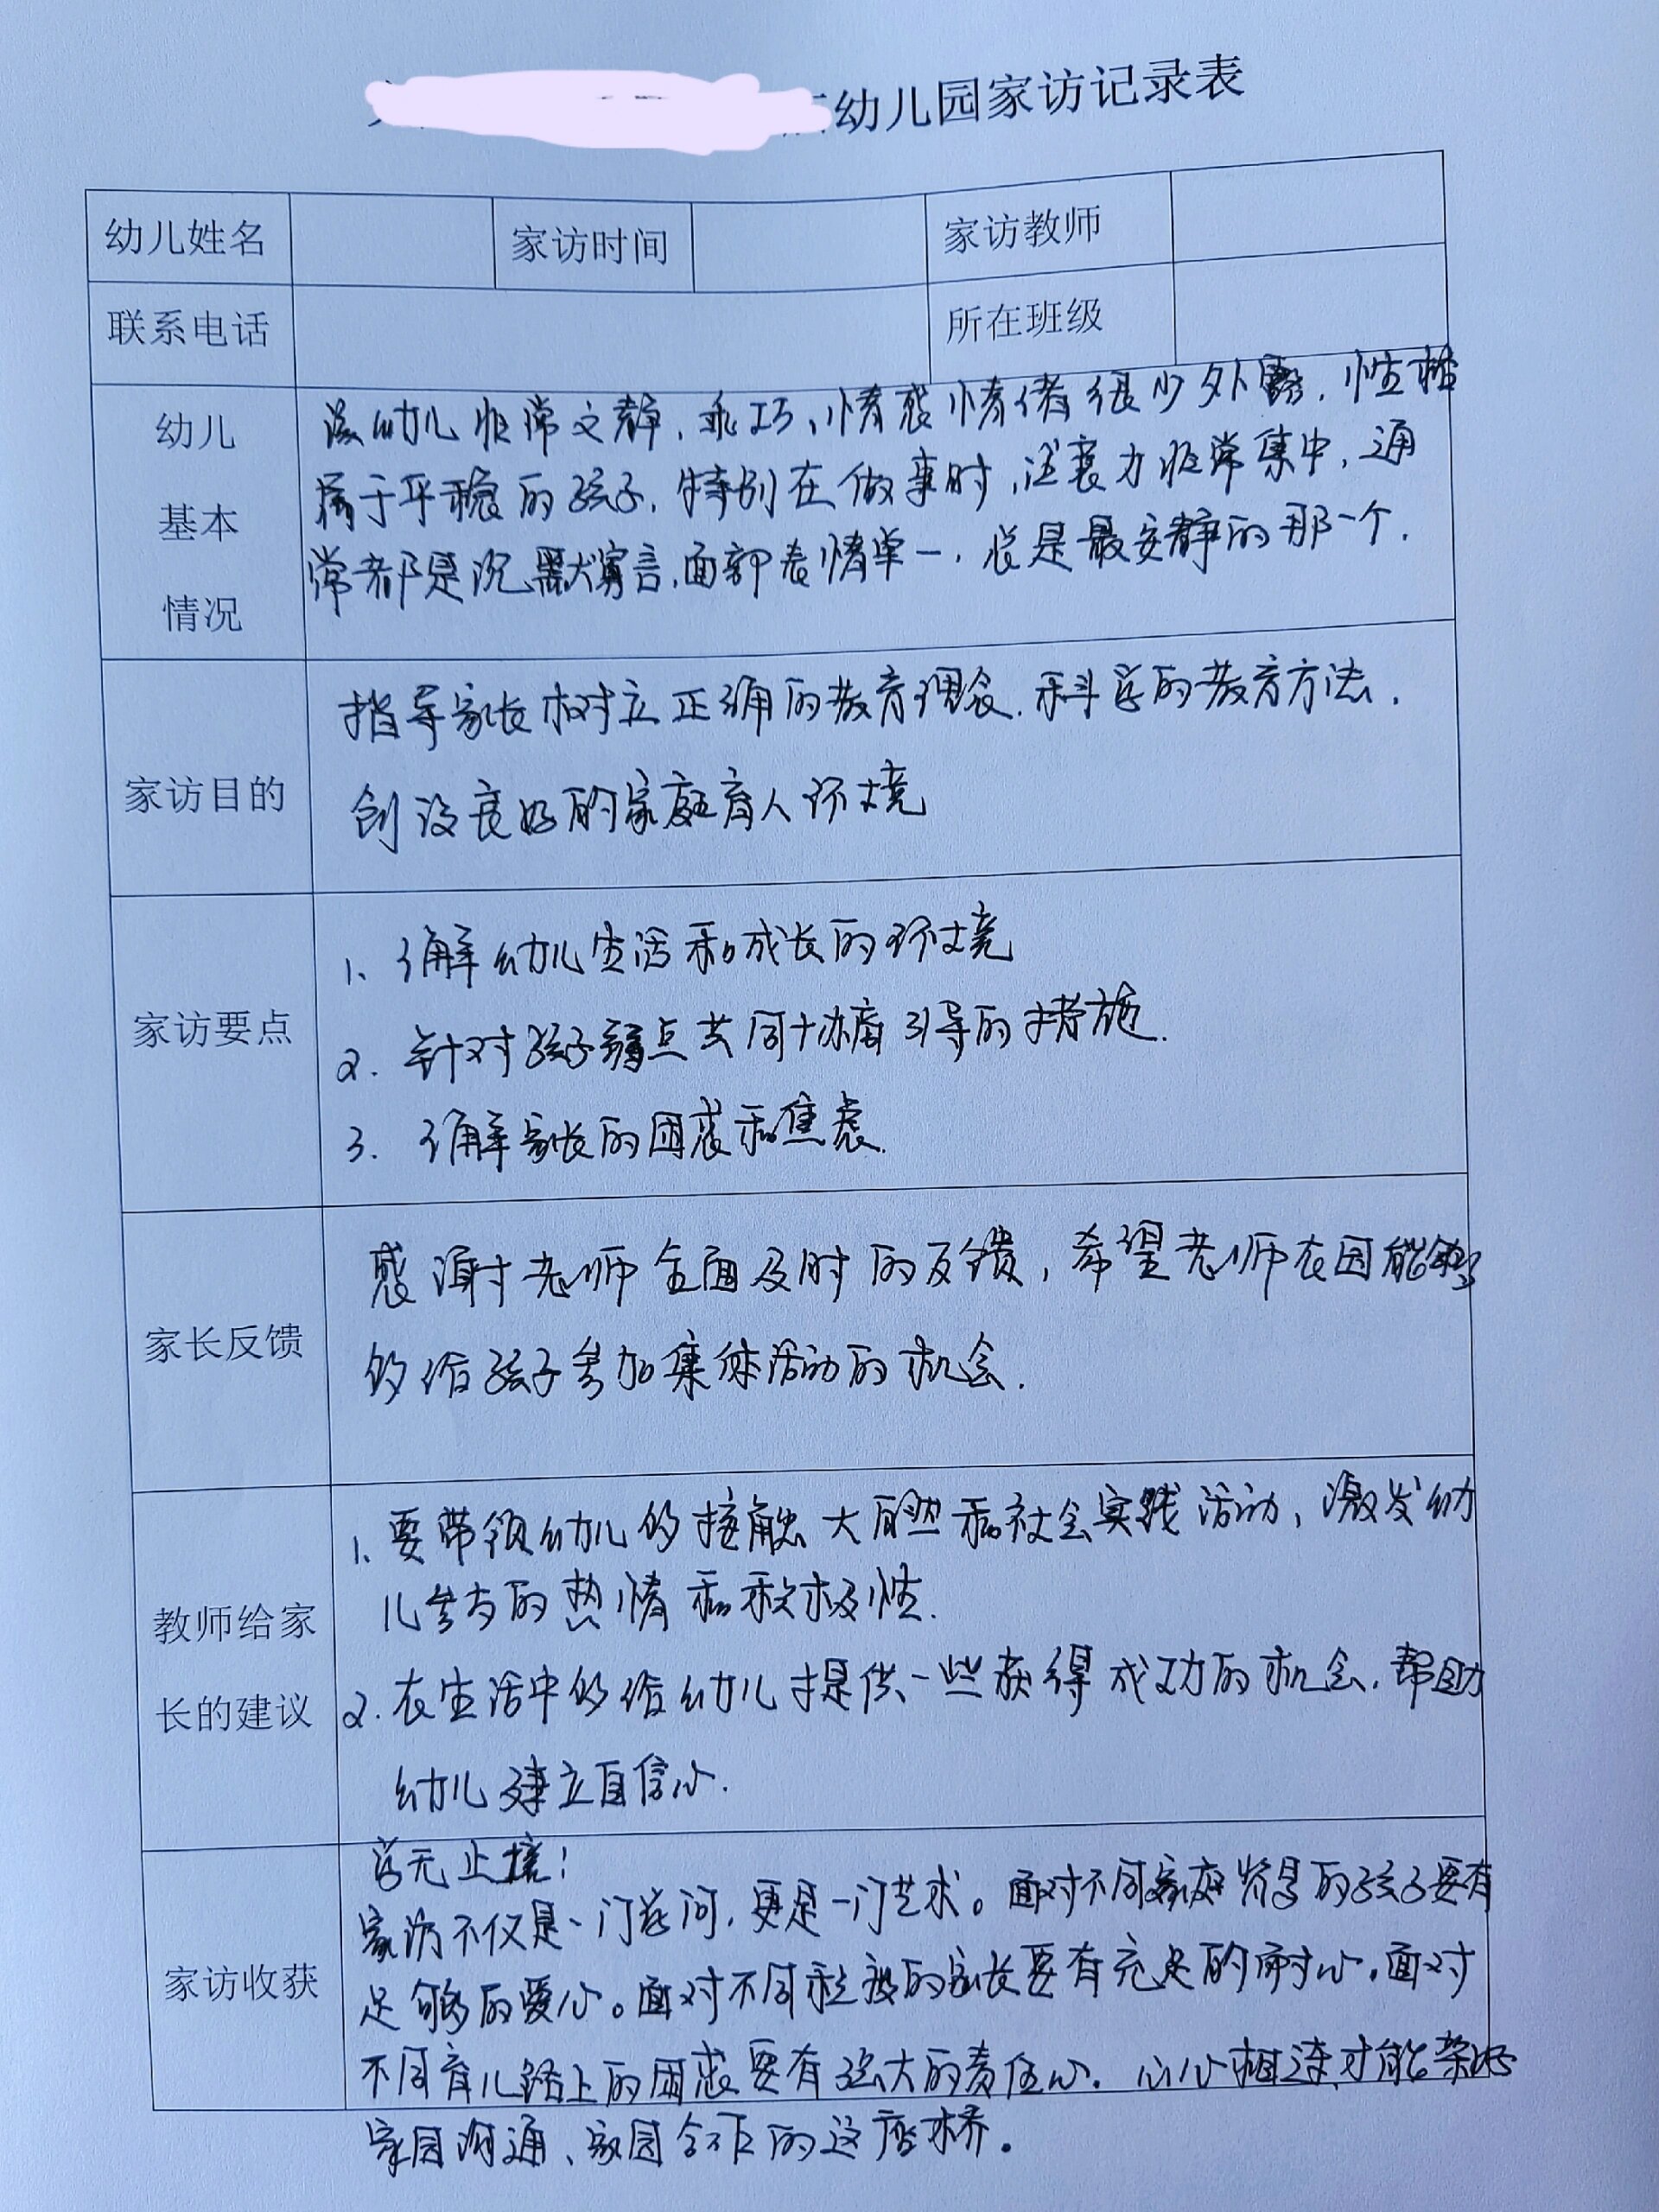 幼儿园家访记录表
幼儿姓名 家访时间 家访教师
联系电话 所在班级
幼儿
基本
情况
该幼儿非常文静、乖巧、情感情绪很少外露,性格
属于平稳的孩子,特别在做事时,注意力非常集中,通
常都是沉默寡言,面部表情单一,总是最安静的那一个.
家访目的
指导家长树立正确的教育理念.科学的教育方法.
创设良好的家庭育人环境
家访要点
1、了解幼儿生活和成长的环境
2. 针对孩子弱点共同协商引导的措施.
3. 了解家长的困惑和焦虑.
家长反馈
感谢老师全面及时的反馈,希望老师在园能够
多给孩子参加集体活动的机会.
教师给家
长的建议
1、要带领幼儿多接触大自然和社会实践活动,激发幼
儿参与的热情和积极性.
2.在生活中多给幼儿提供一些获得成功的机会.帮助
幼儿建立自信心.
家访收获
学无止境!
家访不仅是一门学问,更是一门艺术。面对不同家庭背景的孩子要有
足够的爱心。面对不同程度的家长要有充足的耐心。面对
不同育儿路上的困惑要有强大的责任心.心心相连才能架好
家园沟通、家园合作的这座桥。